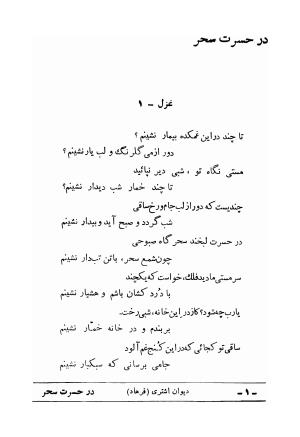 در حسرت سحر
غزل - ۱
تا چند در این غمکده بیمار نشینم ؟
دور از می گلرنگ و لب یار نشینم ؟
مستی نگاه تو ، شبی دیر نپائید
تا چند خمار شب دیدار نشینم ؟
چندیست که دور از لب جام و رخ ساقی
شب گردد و صبح آید و بیدار نشینم
در حسرت لبخند سحر گاه صبوحی
چون شمع سحر ، با تن تب‌دار نشینم
سرمستی ما دید فلک ، خواست که یکچند
با دُرد کشان باشم و هشیار نشینم
یارب چه شود ؟ کاز در این خانه ، شبی رخت .
بر بندم و در خانه خمّار نشینم
ساقی تو کجائی که در این کُنج غم آلود
جامی برسانی که سبکبار نشینم
- ۱ -
دیوان اشتری (فرهاد)
در حسرت سحر